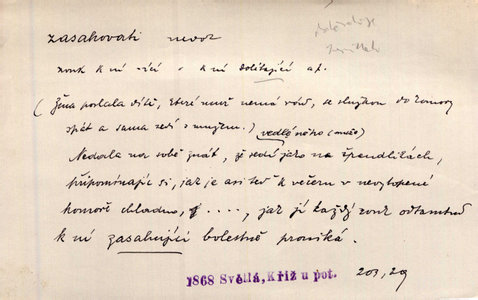 zasahovati nedok
zvuk k ní ... v k ní dolétající ap.
(Žena poslala dítě, které muž nemá rád, se služkou do komory
spát a sama sedí s mužem.) vedlé něho (muže)
Nedala na sobě znát, že sedí jako na špendlíkách,
připomínajíc si, jak je asi teď k večeru v nevytopené
komoře chladno, ...., jak jí každý zvuk odtamtud
k ní zasahující bolestně proniká.
1868 Světlá, Kříž u pot. 203, 29